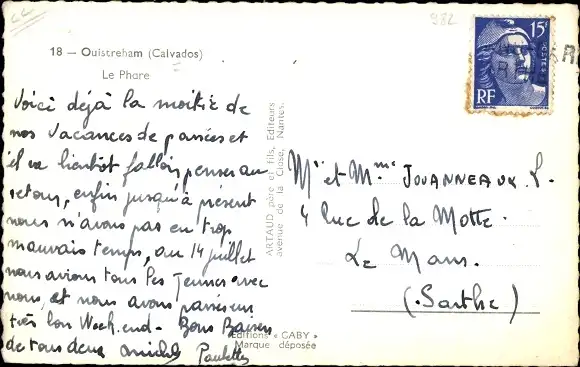 982
18 — Ouistreham (Calvados)
Le Phare
Voici déjà la moitié de
nos vacances de passées et
il va bientôt falloir penser au
retour, enfin jusqu'à présent
nous n'avons pas eu trop
mauvais temps, au 14 juillet
nous avions tous les jeunes avec
nous, et nous avons passé un
très bon Week-end - Bons Baisers
de tous deux Paulette
ARTAUD père et fils, Editeurs
avenue de la Close, Nantes.
Editions « GABY »
Marque déposée
15f
POSTES
RF
Mr et Mme JOUANNEAUX. L.
4 Rue de la Motte.
Le Mans.
(Sarthe)